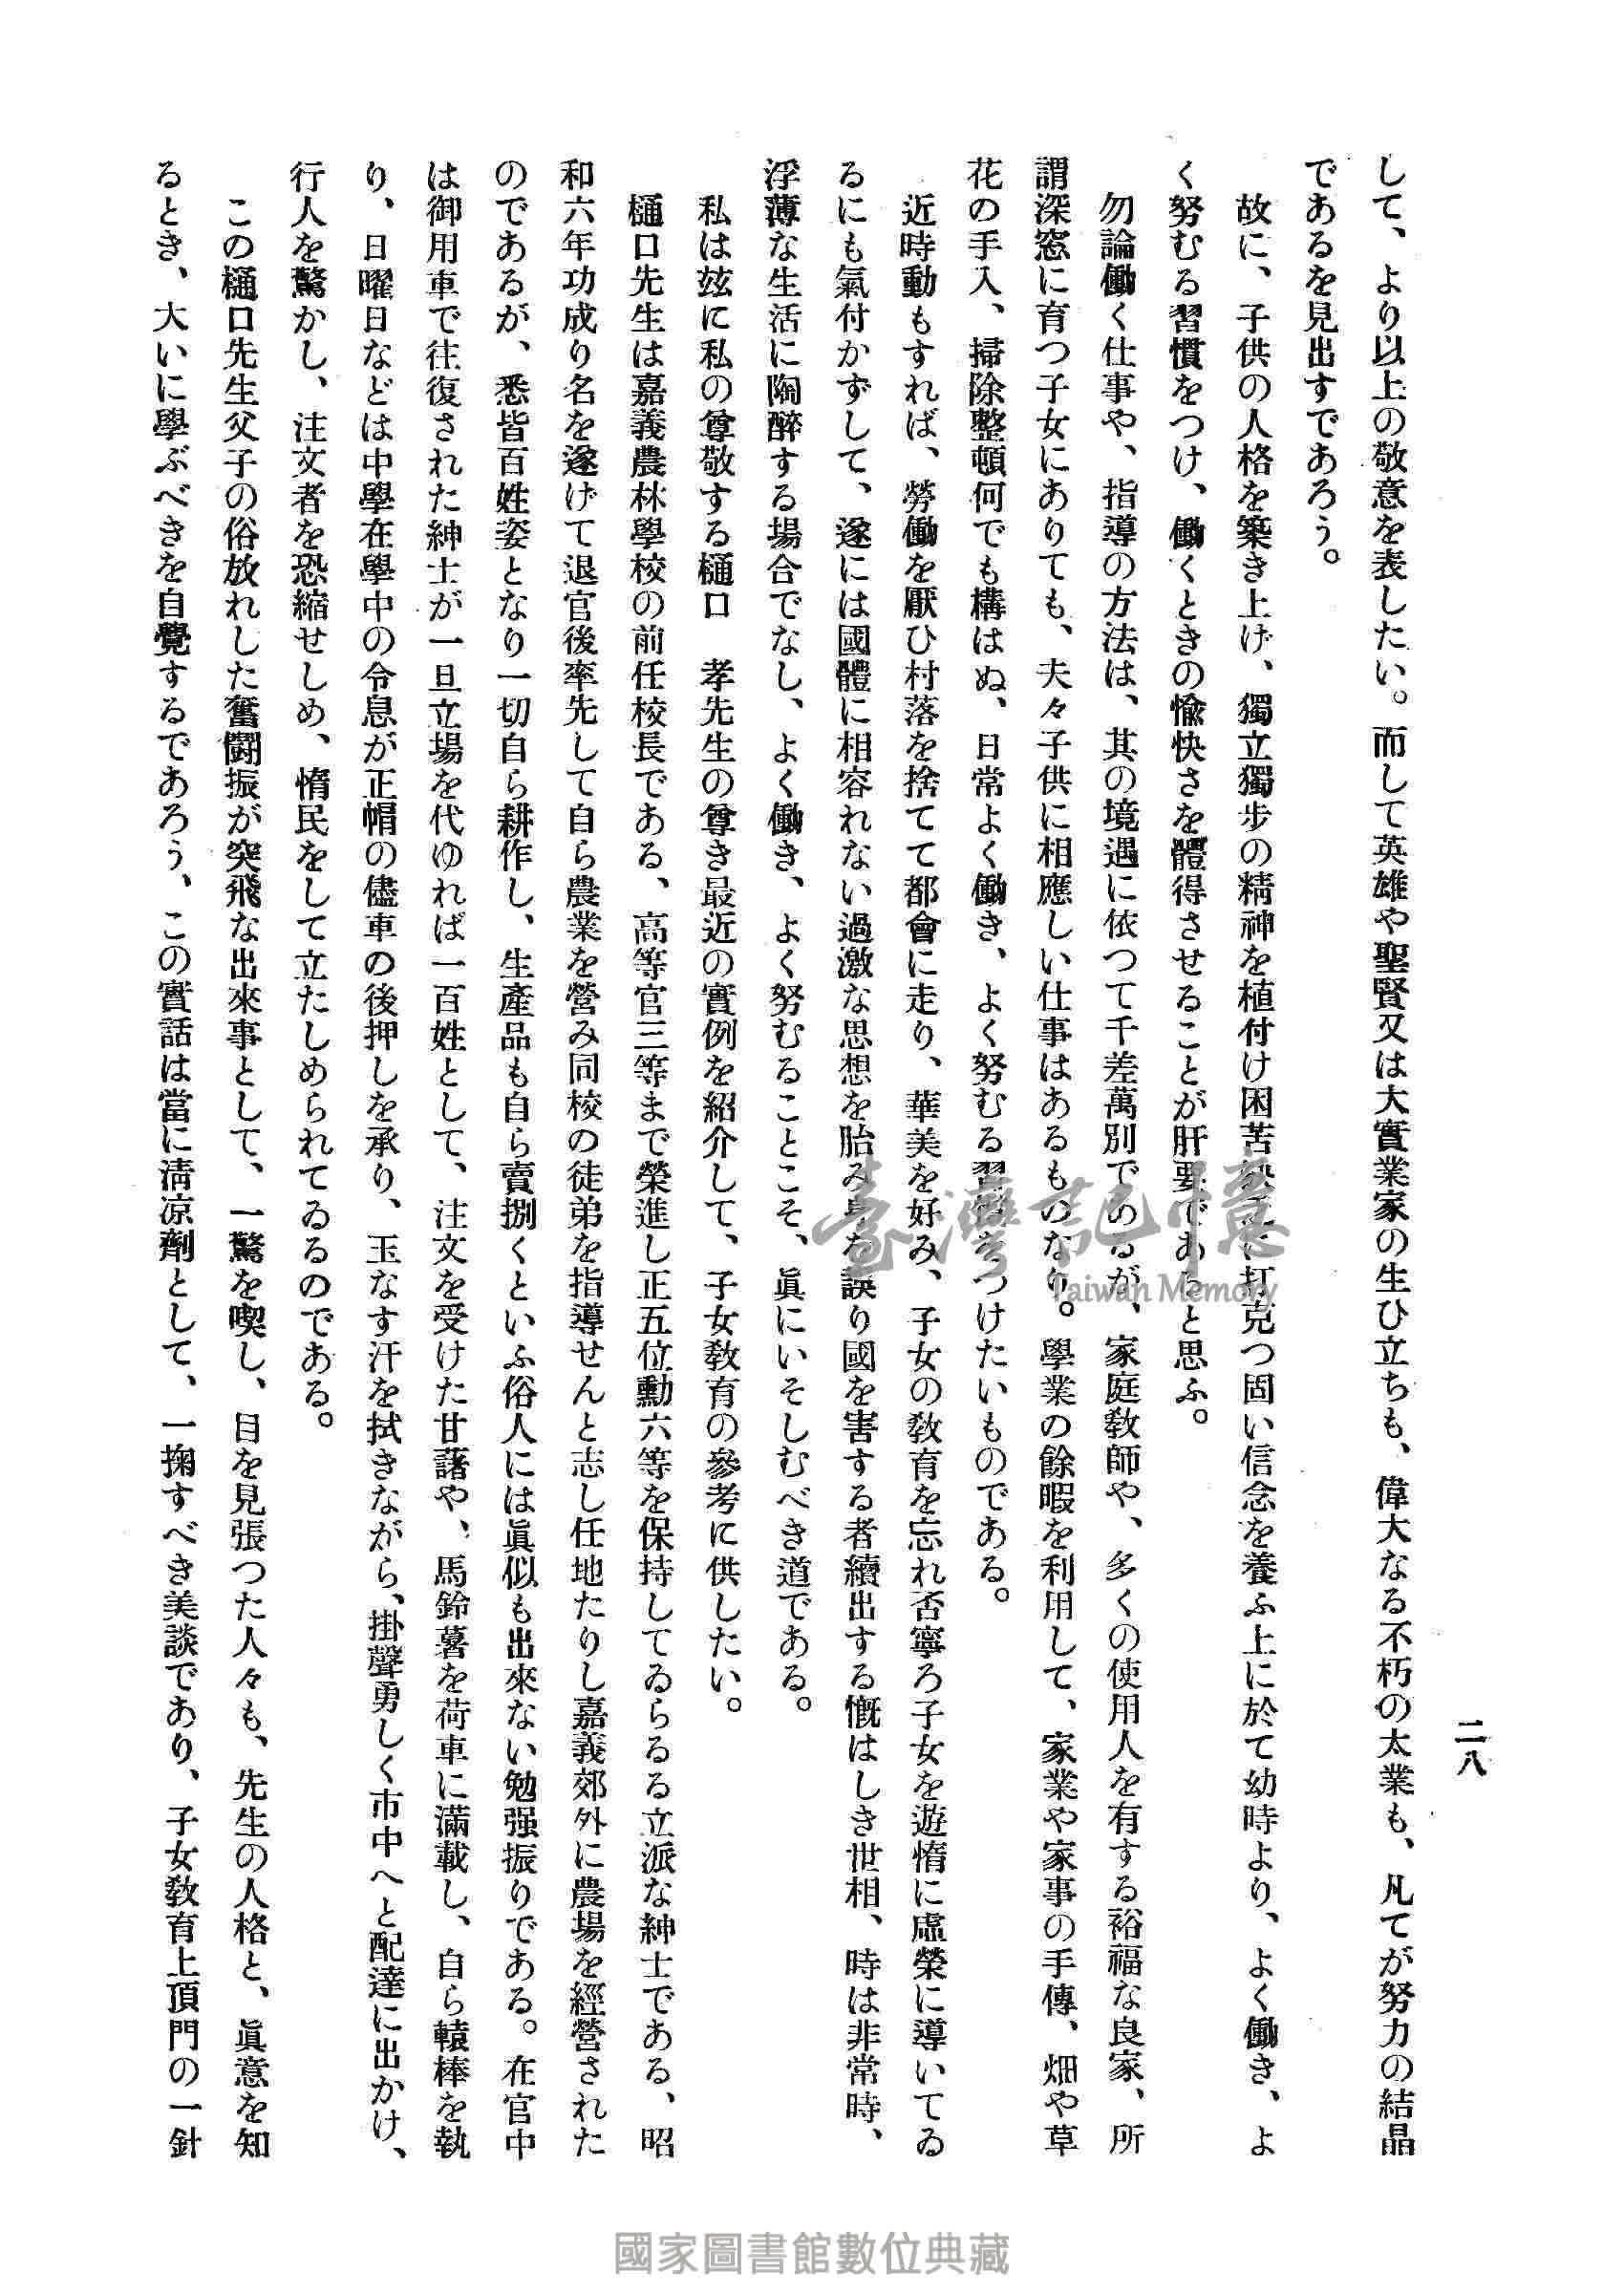 二八
して、より以上の敬意を表したい。而して英雄や聖賢又は大實業家の生ひ立ちも、偉大なる不朽の太業も、凡てが努力の結晶
であるを見出すであろう。
故に、子供の人格を築き上げ、獨立獨步の精神を植付け困苦に打克つ固い信念を養ふ上に於て幼時より、よく働き、よ
く努むる習慣をつけ、働くときの愉快さを體得させることが肝要であると思ふ。
勿論働く仕事や、指導の方法は、其の境遇に依つて千差萬別であるが、家庭敎師や、多くの使用人を有する裕福な良家、所
謂深窓に育つ子女にありても、夫々子供に相應しい仕事はあるものなり。學業の餘暇を利用して、家業や家事の手傳、畑や草
花の手入、掃除整頓何でも構はぬ、日常よく働き、よく努むる習慣をつけたいものである。
近時動もすれば、勞働を厭ひ村落を捨てて都會に走り、華美を好み、子女の敎育を忘れ否寧ろ子女を遊惰に虛榮に導いてゐ
るにも氣付かずして、遂には國體に相容れない過激な思想を胎み身を誤り國を害する者續出する慨はしき世相、時は非常時、
浮薄な生活に陶醉する場合でなし、よく働き、よく努むることこそ、眞にいそしむべき道である。
私は玆に私の尊敬する樋口 孝先生の尊き最近の實例を紹介して、子女敎育の參考に供したい。
樋口先生は嘉義農林學校の前任校長である、高等官三等まで榮進し正五位勳六等を保持してゐらるる立派な紳士である、昭
和六年功成り名を遂げて退官後率先して自ら農業を營み同校の徒弟を指導せんと志し任地たりし嘉義郊外に農場を經營された
のであるが、悉皆百姓姿となり一切自ら耕作し、生產品も自ら賣捌くといふ俗人には眞似も出來ない勉强振りである。在官中
は御用車で往復された紳士が一旦立場を代ゆれば一百姓として、注文を受けた甘藷や、馬鈴薯を荷車に滿載し、自ら轅棒を執
り、日曜日などは中學在學中の令息が正帽の儘車の後押しを承り、玉なす汗を拭きながら、掛聲勇しく市中へと配達に出かけ、
行人を驚かし、注文者を恐縮せしめ、惰民をして立たしめられてゐるのである。
この樋口先生父子の俗放れした奮鬪振が突飛な出來事として、一驚を喫し、目を見張つた人々も、先生の人格と、眞意を知
るとき、大いに學ぶべきを自覺するであろう、この實話は當に淸凉劑として、一掬すべき美談であり、子女敎育上頂門の一針
臺灣記憶
Taiwan Memory
國家圖書館數位典藏